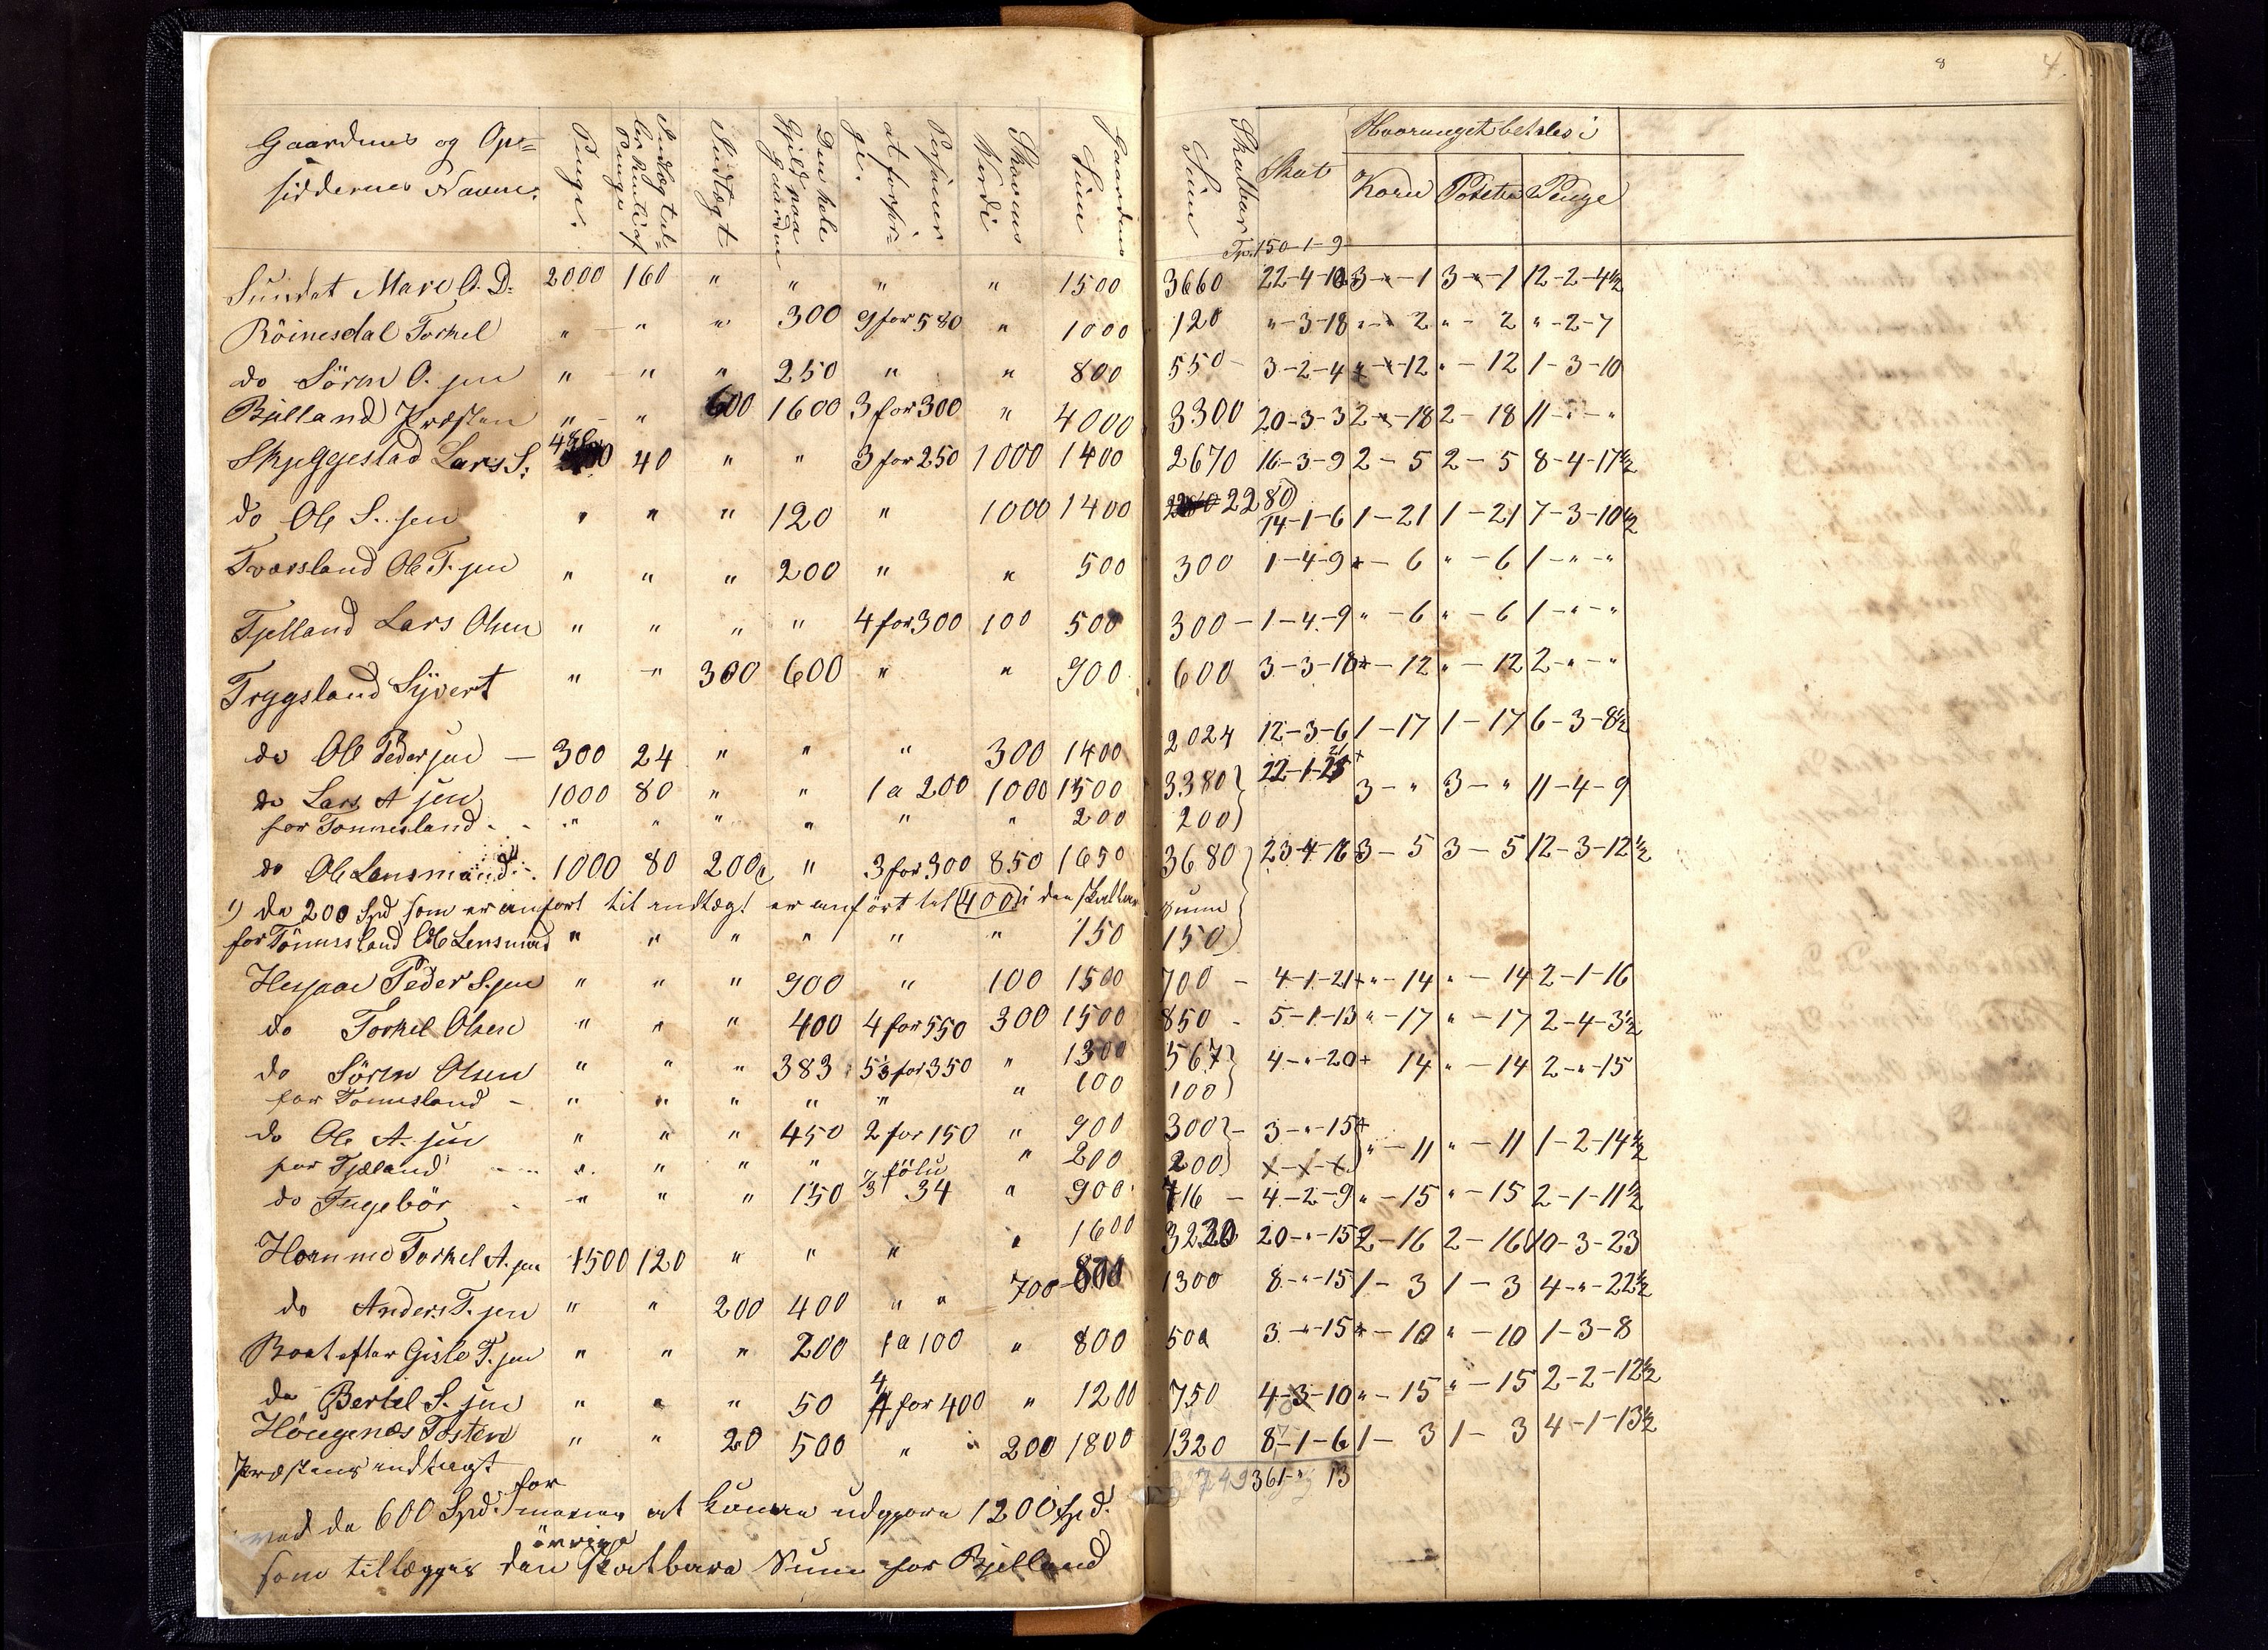 8 4.
Gaardenes og Op=
siddernes Navne.
Penge.
Indtægt tel=
ler hentet af
Penge
Indtægt
Den hele
Gjeld paa
Gaarden
Personer
at forsør=
ge.
Skovens
Værdi
Gaardens
Sum
Skatbar
Sum
Skat
Hvoraf noget betales i
Korn Poteter Penge
Tp. 150-1-9
Sundet Mare O. D. 2000 160 " " " " 1500 3660 22-4-10 3-"-1 3-"-1 12-2-4½
Röinesdal Torkel " " " 300 9 for 580 " 1000 120 "-3-18 "-" 2 "- 2 "-2-7
do Sören O. sen " " " 250 " " 800 550 3-2-4 "-"-12 "-12 1-3-10
Bjelland Præsten " " 600 1600 3 for 300 " 4000 3300 20-3-3 2-"-18 2-18 11-"-"
Skjeggestad Lars S. 480 40 " " 3 for 250 1000 1400 2670 16-3-9 2-5 2-5 8-4-17½
do Ole S. sen " " " 120 " 1000 1400 2280 14-1-6 1-21 1-21 7-3-10½
Tværsland Ole T. sen " " " 200 " " 500 300 1-4-9 "-6 "-6 1-"-"
Tjelland Lars Olsen " " " " 4 for 300 100 500 300 1-4-9 "-6 "-6 1-"-"
Trygsland Sÿvert " " 300 600 " " 900 600 3-3-18 "-12 "-12 2-"-"
do Ole Pedersen 300 24 " " " 300 1400 2024 12-3-6 1-17 1-17 6-3-8½
do Lars A sen 1000 80 " " 1 a 200 1000 1500 3380 22-1-21 3-" 3-" 11-4-9
for Tonnesland " " " " " " 200 200
do Ole Lensmand 1) 1000 80 200 " 3 for 300 850 1650 3680 23-4-16 3-5 3-5 12-3-12½
1) de 200 Spd som er anfort til indtægt er anfört til 400 i den skatbare Sum
for Tönnesland Ole Lensmand " " " " " " 150 150
Hesjaae Peder S. sen " " " 900 " 100 1500 700 4-1-21 "-14 "-14 2-1-16
do Torkel Olsen " " " 400 4 for 550 300 1500 850 5-1-13 "-17 "-17 2-4-3½
do Sören Olsen " " " 383 5⅓ for 350 " 1300 567 4-"-20 14 "-14 2-"-15
for Tonnesland " " " " " " 100 100
do Ole A. sen " " " 450 2 for 150 " 900 300 3-"-15 "-11 "-11 1-2-14½
for Tjæland " " " " " 200 200 x-x-x
do Ingebör " " " 150 34 " 900 716 4-2-9 "-15 "-15 2-1-11½
Hornme Torkel A. sen 1500 120 " " " " 1600 3220 20-"-15 2-16 2-16 10-3-23
do Anders T. sen " " 200 400 " " 700 800 1300 8-"-15 1-3 1-3 4-"-22½
Boat efter Gisle T. sen " " " 200 1 a 100 " 800 500 3-"-15 "-10 "-10 1-3-8
do Bertel S. sen " " " 50 4 for 400 " 1200 750 4-3-10 "-15 "-15 2-2-12½
Höugenæs Tosten " " 20 500 " 200 1800 1320 8-1-6 1-3 1-3 4-1-13½
361-" 13
Præstens indtægt
ved de 600 Spd. for at kunne udgjøre 1200 Spd.
som tillægges den övrige skatbare Sum for Bjelland